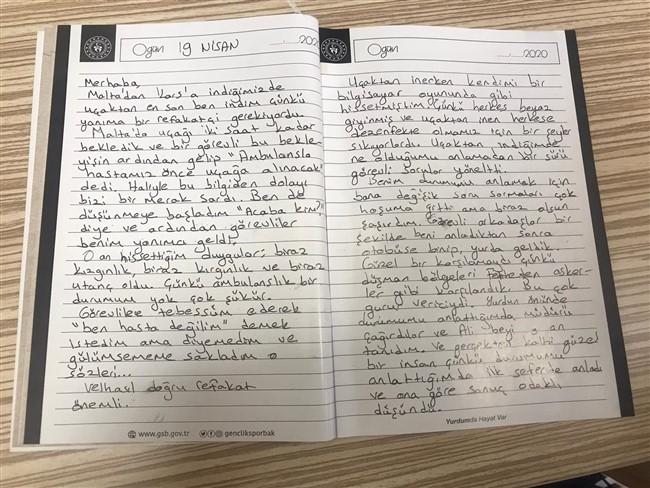 Ogün 19 NİSAN
2020
Merhaba,
Malta'dan Kars'a indiğimizde
uçaktan en son ben indim çünkü
yanıma bir refakatçi gerekiyordu.
Malta'da uçağı iki saat kadar
bekledik ve bir görevli bu bekle-
yişin ardından gelip "Ambulansla
hastamız önce uçağa alınacak"
dedi. Haliyle bu bilgiden dolayı
bizi bir merak sardı. Ben de
düşünmeye başladım "Acaba kim?"
diye ve ardından görevliler
benim yanıma geldi.
O an hissettiğim duygular; biraz
kızgınlık, biraz kırgınlık ve biraz
utanç oldu. Çünkü ambulanslık bir
durumum yok çok şükür.
Görevlilere tebessüm ederek
"ben hasta değilim" demek
istedim ama diyemedim ve
gülümsememe sakladım o
sözleri...
Velhasıl doğru refakat
önemli.
www.gsb.gov.tr
gencliksporbak
Ogün
2020
Uçaktan inerken kendimi bir
bilgisayar oyununda gibi
hissetmiştim çünkü herkes beyaz
giyinmiş ve uçaktan inen herkese
dezenfekte olmamız için bir şeyler
sıkıyorlardı. Uçaktan indiğimde
ne olduğumu anlamadan bir sürü
görevli sorular yöneltti.
Benim durumumu anlamak için
bana değişik soru sormaları çok
hoşuma gitti ama biraz olsun
şaşırdım. Görevli arkadaşlar bir
şekilde beni anladıktan sonra
otobüse binip, yurda geldik.
Güzel bir karşılamaydı çünkü
düşman bölgeleri fetheden asker-
ler gibi karşılandık. Bu çok
gurur vericiydi. Yurdun önünde
durumumu anlattığımda müdürü
çağırdılar ve Ali beyi o an
tanıdım. Ve gerçekten kalbi güzel
bir insan çünkü durumumu
anlattığımda ilk seferde anladı
ve ona göre sonuç odaklı
düşündü.
Yurdumda Hayat Var